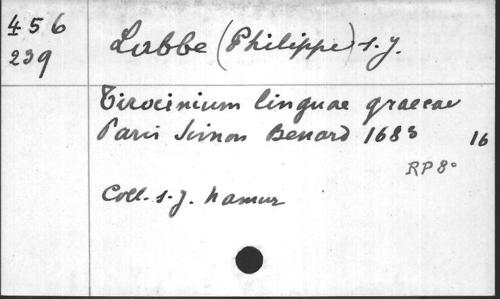 456
239
Labbe (Philippe) s.J.
Tirocinium linguae graecae
Paris Simon Benard 1683 16
RP 8°
Coll. s.J. Namur